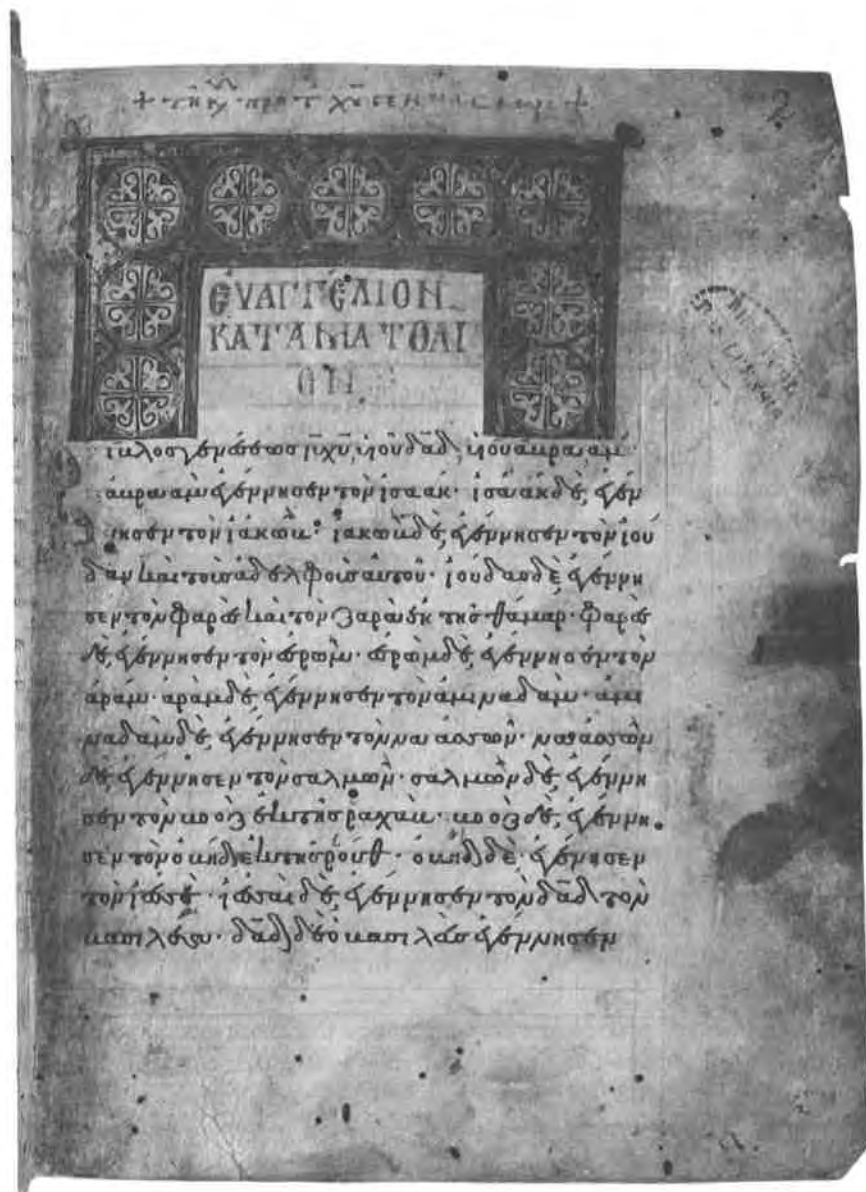 + τη κυ προ τ χυ γενησεως +
2
ΕΥΑΓΓΕΛΙΟΝ
ΚΑΤΑ ΜΑΤΘΑΙ
ΟΝ
ιβλος γενέσεως ιυ χυ υιου δαδ υιου αβρααμ·
αβρααμ ἐγέννησεν τὸν ισαάκ· ισαὰκ δὲ ἐγέν
νησεν τὸν ιακώβ· ιακὼβ δὲ ἐγέννησεν τὸν ιού
δαν καὶ τοὺς ἀδελφοὺς αὐτοῦ· ιούδας δὲ ἐγέννη
σεν τὸν φαρὲς καὶ τὸν ζαρὰ ἐκ της θάμαρ· φαρὲς
δὲ ἐγέννησεν τὸν ἐσρώμ· ἐσρὼμ δὲ ἐγέννησεν τὸν
ἀράμ· ἀρὰμ δὲ ἐγέννησεν τὸν ἀμιναδάμ· ἀμι
ναδὰμ δὲ ἐγέννησεν τὸν ναασσών· ναασσὼν
δὲ ἐγέννησεν τὸν σαλμών· σαλμὼν δὲ ἐγέννη
σεν τὸν βοὸζ ἐκ της ραχάβ· βοὸζ δὲ ἐγέννη
σεν τὸν ὀβὴδ ἐκ της ροὺθ· ὀβὴδ δὲ ἐγέννησεν
τὸν ιεσσέ· ιεσσαὶ δὲ ἐγέννησεν τὸν δαδ τὸν
βασιλέα· δαδ δὲ ὁ βασιλεὺς ἐγέννησεν